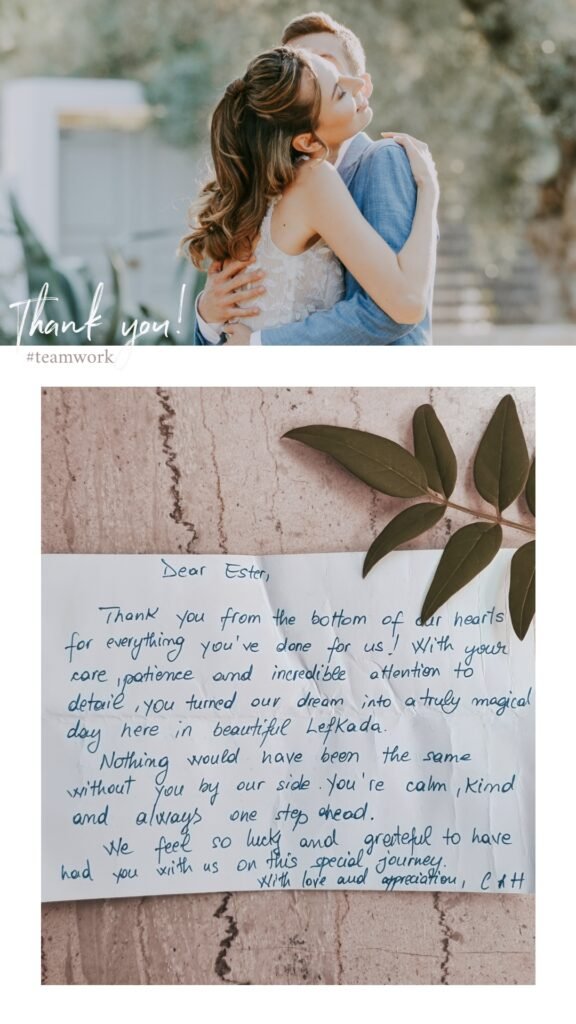 Thank you!
#teamwork
Dear Ester,
Thank you from the bottom of our hearts
for everything you've done for us! With your
care, patience and incredible attention to
detail, you turned our dream into a truly magical
day here in beautiful Lefkada.
Nothing would have been the same
without you by our side. You're calm, kind
and always one step ahead.
We feel so lucky and grateful to have
had you with us on this special journey.
With love and appreciation, C & H